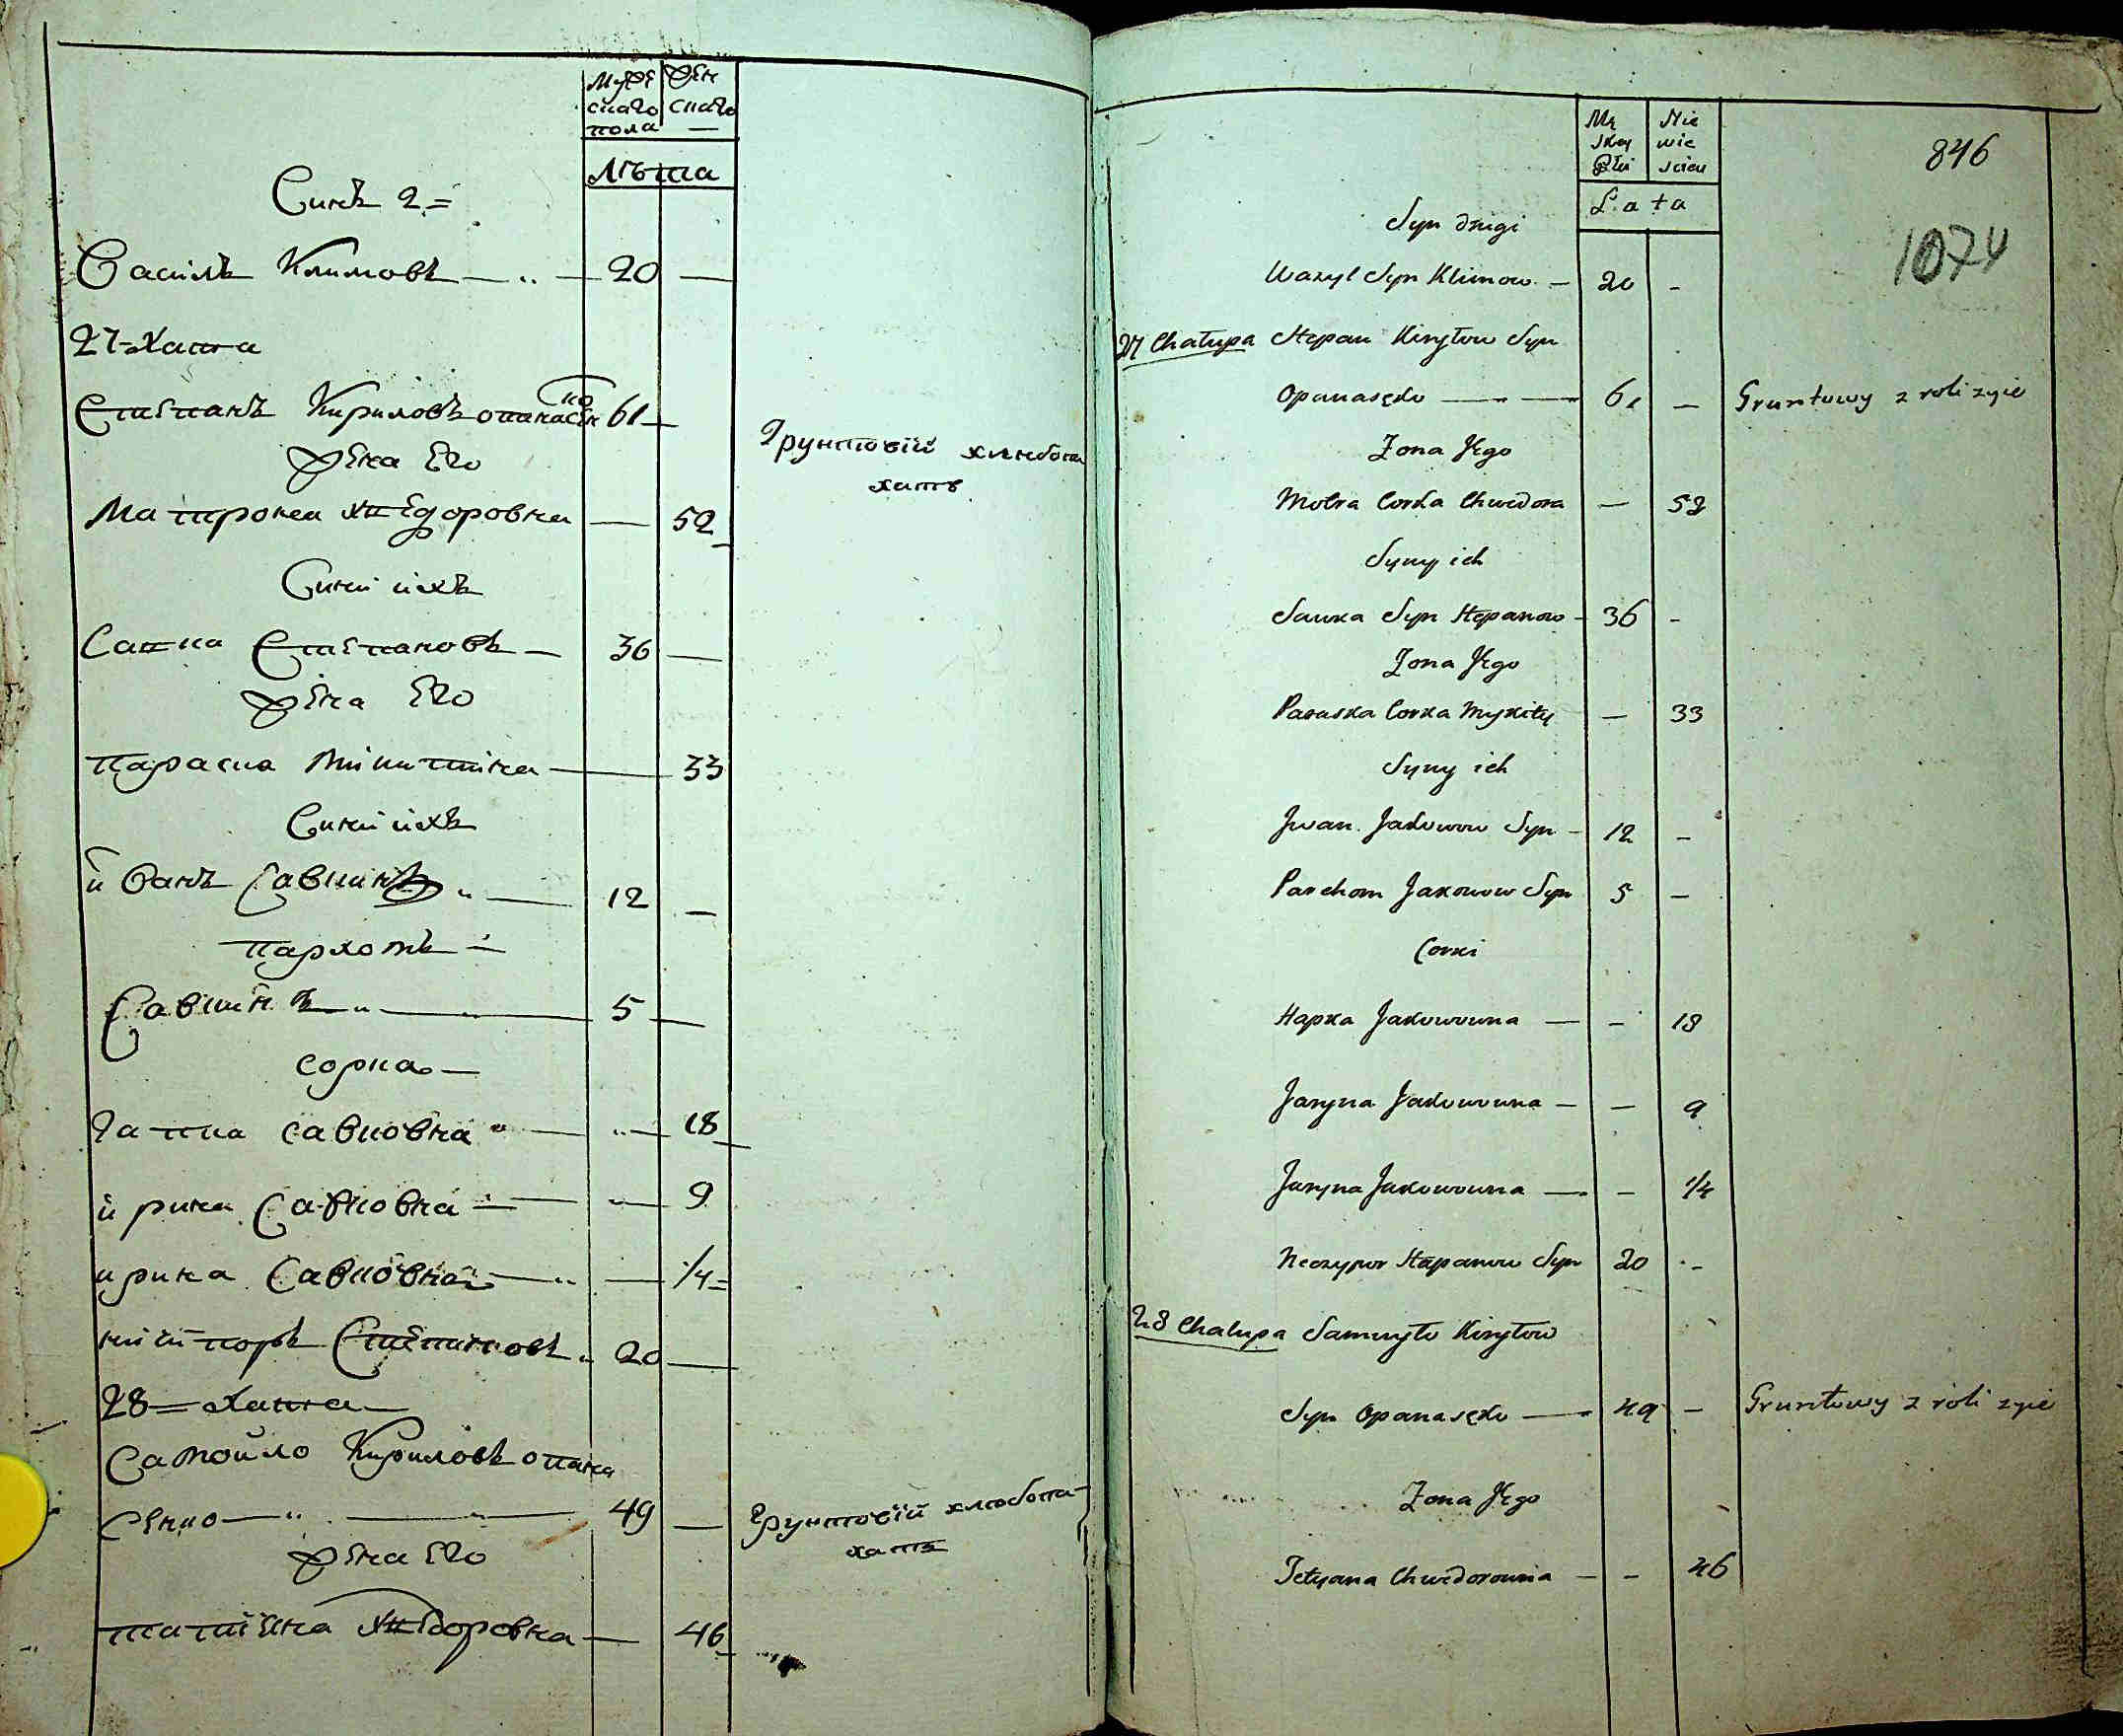 Муже
скаго
пола
жен
скаго
—
Лѣта
Синъ 2 =
Василь Климовъ — „ — 20 —
27 - Хатка
Степанъ Кириловъ опанасенко 61 —
Жена Его
Грунтовій хлѣбопа
хатъ
Матрона хведоровна — 52
Сини ихъ
Савка Степановъ — 36 —
Жена Его
параска микитина — 33
Сини ихъ
иванъ Савчинъ „ — 12 —
пархомъ
Савчинъ „ — 5 —
дорка —
гапка савковна „ — „ — 18
ирина Савковна — „ — 9
ирина Савковна — „ — 1/4 =
ничипоръ Степановъ „ 20 —
28 = хатка —
Самойло Кириловъ опана
сенко — „ — 49 —
Грунтовій хлѣбопа-
хатъ
Жена Его
татіяна хведоровна — 46
Mę
skey
Płci
Nie
wie
sciey
Lata
846
1074
Syn drugi
Wazyl Syn Klimow — 20 -
27 Chałupa Stepan Kiryłow Syn
Opanasęko — — 61 — Gruntowy z roli zyie
Zona Jego
Motra Corka Chwedora — 52
Syny ich
Sawka Syn Stepanow - 36 -
Zona Jego
Paraska Corka Mykity — 33
Syny ich
Jwan Jakowow Syn - 12 -
Parchom Jakowow Syn 5 -
Corki
Hapka Jakowowna — - 18
Jaryna Jakowowna — — 9
Jaryna Jakowowna — - 1/4
Neczypor Stepanow Syn 20 -
28 Chałupa Samuyło Kiryłow
Syn Opanasęko — 49 — Gruntowy z roli zyie
Zona Jego
Tetyana Chwedorowna — - 46